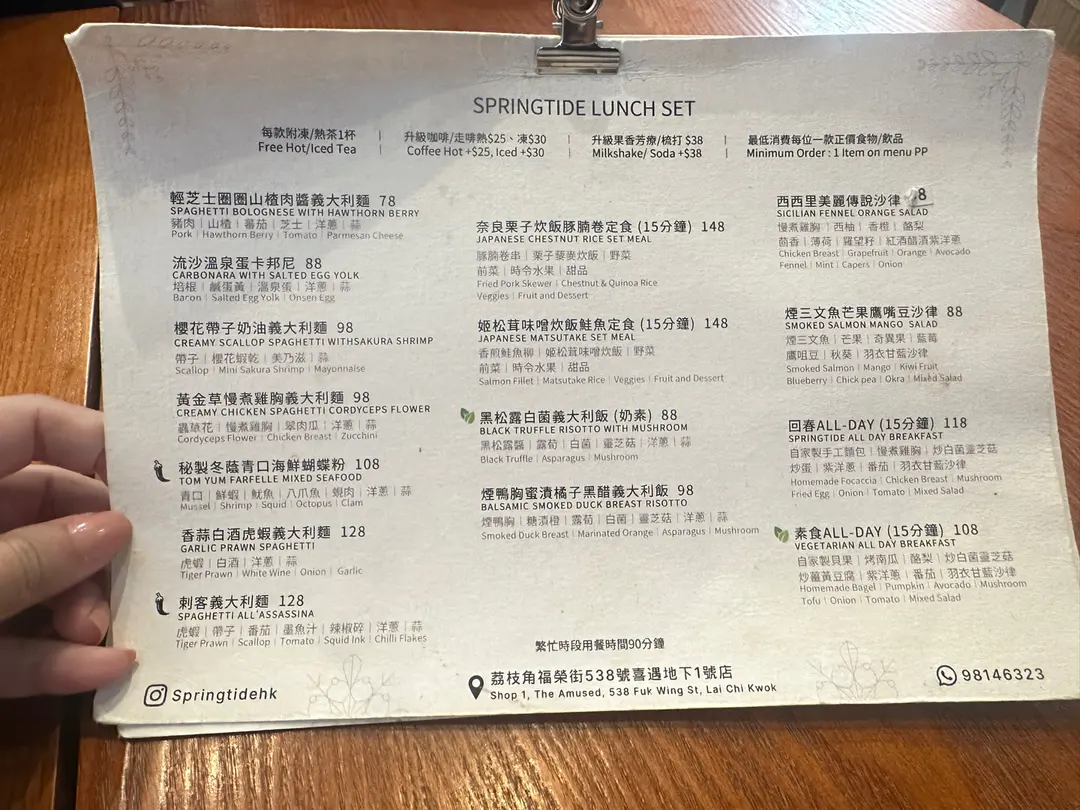 SPRINGTIDE LUNCH SET
每款附凍/熱茶1杯 | 升級咖啡/走啡熱$25、凍$30 | 升級果香芳療/梳打 $38 | 最低消費每位一款正價食物/飲品
Free Hot/Iced Tea | Coffee Hot +$25, Iced +$30 | Milkshake/ Soda +$38 | Minimum Order : 1 Item on menu PP
輕芝士圈圈山楂肉醬義大利麵 78
SPAGHETTI BOLOGNESE WITH HAWTHORN BERRY
豬肉 | 山楂 | 番茄 | 芝士 | 洋蔥 | 蒜
Pork | Hawthorn Berry | Tomato | Parmesan Cheese
流沙溫泉蛋卡邦尼 88
CARBONARA WITH SALTED EGG YOLK
培根 | 鹹蛋黃 | 溫泉蛋 | 洋蔥 | 蒜
Bacon | Salted Egg Yolk | Onsen Egg
櫻花帶子奶油義大利麵 98
CREAMY SCALLOP SPAGHETTI WITHSAKURA SHRIMP
帶子 | 櫻花蝦乾 | 美乃滋 | 蒜
Scallop | Mini Sakura Shrimp | Mayonnaise
黃金草慢煮雞胸義大利麵 98
CREAMY CHICKEN SPAGHETTI CORDYCEPS FLOWER
蟲草花 | 慢煮雞胸 | 翠肉瓜 | 洋蔥 | 蒜
Cordyceps Flower | Chicken Breast | Zucchini
秘製冬蔭青口海鮮蝴蝶粉 108
TOM YUM FARFELLE MIXED SEAFOOD
青口 | 鮮蝦 | 魷魚 | 八爪魚 | 蜆肉 | 洋蔥 | 蒜
Mussel | Shrimp | Squid | Octopus | Clam
香蒜白酒虎蝦義大利麵 128
GARLIC PRAWN SPAGHETTI
虎蝦 | 白酒 | 洋蔥 | 蒜
Tiger Prawn | White Wine | Onion | Garlic
刺客義大利麵 128
SPAGHETTI ALL'ASSASSINA
虎蝦 | 帶子 | 番茄 | 墨魚汁 | 辣椒碎 | 洋蔥 | 蒜
Tiger Prawn | Scallop | Tomato | Squid Ink | Chilli Flakes
奈良栗子炊飯豚腩卷定食 (15分鐘) 148
JAPANESE CHESTNUT RICE SET MEAL
豚腩卷串 | 栗子藜麥炊飯 | 野菜
前菜 | 時令水果 | 甜品
Fried Pork Skewer | Chestnut & Quinoa Rice
Veggies | Fruit and Dessert
姬松茸味噌炊飯鮭魚定食 (15分鐘) 148
JAPANESE MATSUTAKE SET MEAL
香煎鮭魚柳 | 姬松茸味噌炊飯 | 野菜
前菜 | 時令水果 | 甜品
Salmon Fillet | Matsutake Rice | Veggies | Fruit and Dessert
黑松露白菌義大利飯 (奶素) 88
BLACK TRUFFLE RISOTTO WITH MUSHROOM
黑松露醬 | 露荀 | 白菌 | 靈芝菇 | 洋蔥 | 蒜
Black Truffle | Asparagus | Mushroom
煙鴨胸蜜漬橘子黑醋義大利飯 98
BALSAMIC SMOKED DUCK BREAST RISOTTO
煙鴨胸 | 糖漬橙 | 露荀 | 白菌 | 靈芝菇 | 洋蔥 | 蒜
Smoked Duck Breast | Marinated Orange | Asparagus | Mushroom
西西里美麗傳說沙律 8
SICILIAN FENNEL ORANGE SALAD
慢煮雞胸 | 西柚 | 香橙 | 酪梨
茴香 | 薄荷 | 羅望籽 | 紅酒醋漬紫洋蔥
Chicken Breast | Grapefruit | Orange | Avocado
Fennel | Mint | Capers | Onion
煙三文魚芒果鷹嘴豆沙律 88
SMOKED SALMON MANGO SALAD
煙三文魚 | 芒果 | 奇異果 | 藍莓
鷹咀豆 | 秋葵 | 羽衣甘藍沙律
Smoked Salmon | Mango | Kiwi Fruit
Blueberry | Chick pea | Okra | Mixed Salad
回春ALL-DAY (15分鐘) 118
SPRINGTIDE ALL DAY BREAKFAST
自家製手工麵包 | 慢煮雞胸 | 炒白菌靈芝菇
炒蛋 | 紫洋蔥 | 番茄 | 羽衣甘藍沙律
Homemade Focaccia | Chicken Breast | Mushroom
Fried Egg | Onion | Tomato | Mixed Salad
素食ALL-DAY (15分鐘) 108
VEGETARIAN ALL DAY BREAKFAST
自家製貝果 | 烤南瓜 | 酪梨 | 炒白菌靈芝菇
炒薑黃豆腐 | 紫洋蔥 | 番茄 | 羽衣甘藍沙律
Homemade Bagel | Pumpkin | Avocado | Mushroom
Tofu | Onion | Tomato | Mixed Salad
繁忙時段用餐時間90分鐘
Springtidehk
荔枝角福榮街538號喜遇地下1號店
Shop 1, The Amused, 538 Fuk Wing St, Lai Chi Kwok
98146323